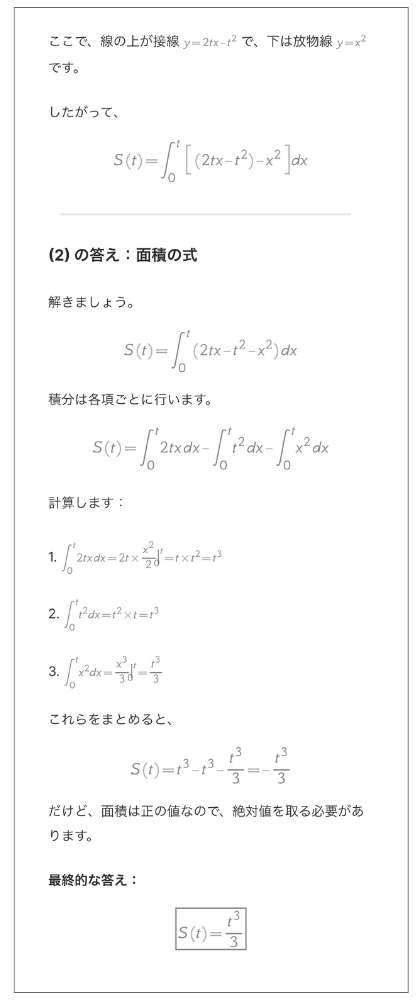 ここで、線の上が接線 y=2tx-t² で、下は放物線 y=x²
です。
したがって、
S(t)=∫₀ᵗ[(2tx-t²)-x²]dx
(2) の答え：面積の式
解きましょう。
S(t)=∫₀ᵗ(2tx-t²-x²)dx
積分は各項ごとに行います。
S(t)=∫₀ᵗ2txdx-∫₀ᵗt²dx-∫₀ᵗx²dx
計算します：
1. ∫₀ᵗ2txdx=2t×x²/2|₀ᵗ=t×t²=t³
2. ∫₀ᵗt²dx=t²×t=t³
3. ∫₀ᵗx²dx=x³/3|₀ᵗ=t³/3
これらをまとめると、
S(t)=t³-t³-t³/3=-t³/3
だけど、面積は正の値なので、絶対値を取る必要があ
ります。
最終的な答え：
S(t)=t³/3